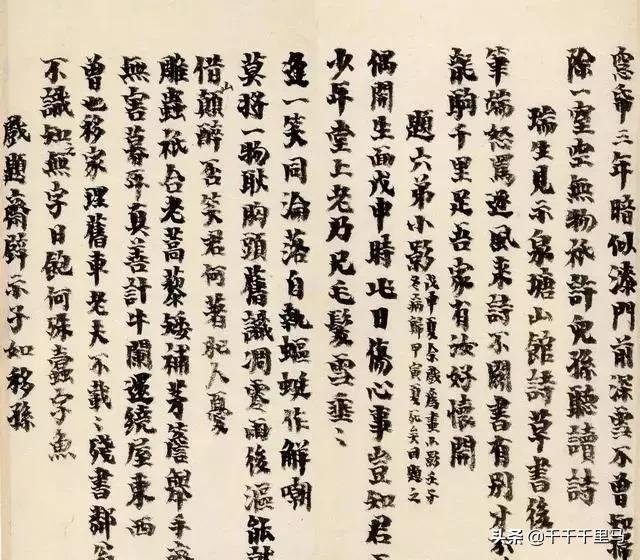 窓帋三年暗似漆門前深雪不曾
除一室空無物祇許兒孫聽讀詩
瑞生見示泉塘山館詩草書後
筆端怒罵逆風來詩不關書有別才不
駒千里足吾家有汝好懷開
題六弟小影 戊申夏余戲爲畫小影壬子
冬病歸甲寅夏死矣因題之
偶開生面戊申時此日傷心事豈知君正
少年堂上老乃兄毛髮雪垂〻
逢一笑同淪落自執蝘蜓作解嘲
莫將一物耿胸頭舊識凋零雨後漚能詩
借山顛醉否笑君何著肥人憂
雕蟲祇合老蒿藜矮補茅簷舉手
無害暮年真善計牛闌還繞屋東西
曾也移家理舊車老夫不載〻殘書鄰翁
不識知無字日飽何殊蠹字魚
戲題齋壁示子如移孫
头条 @千千千里马